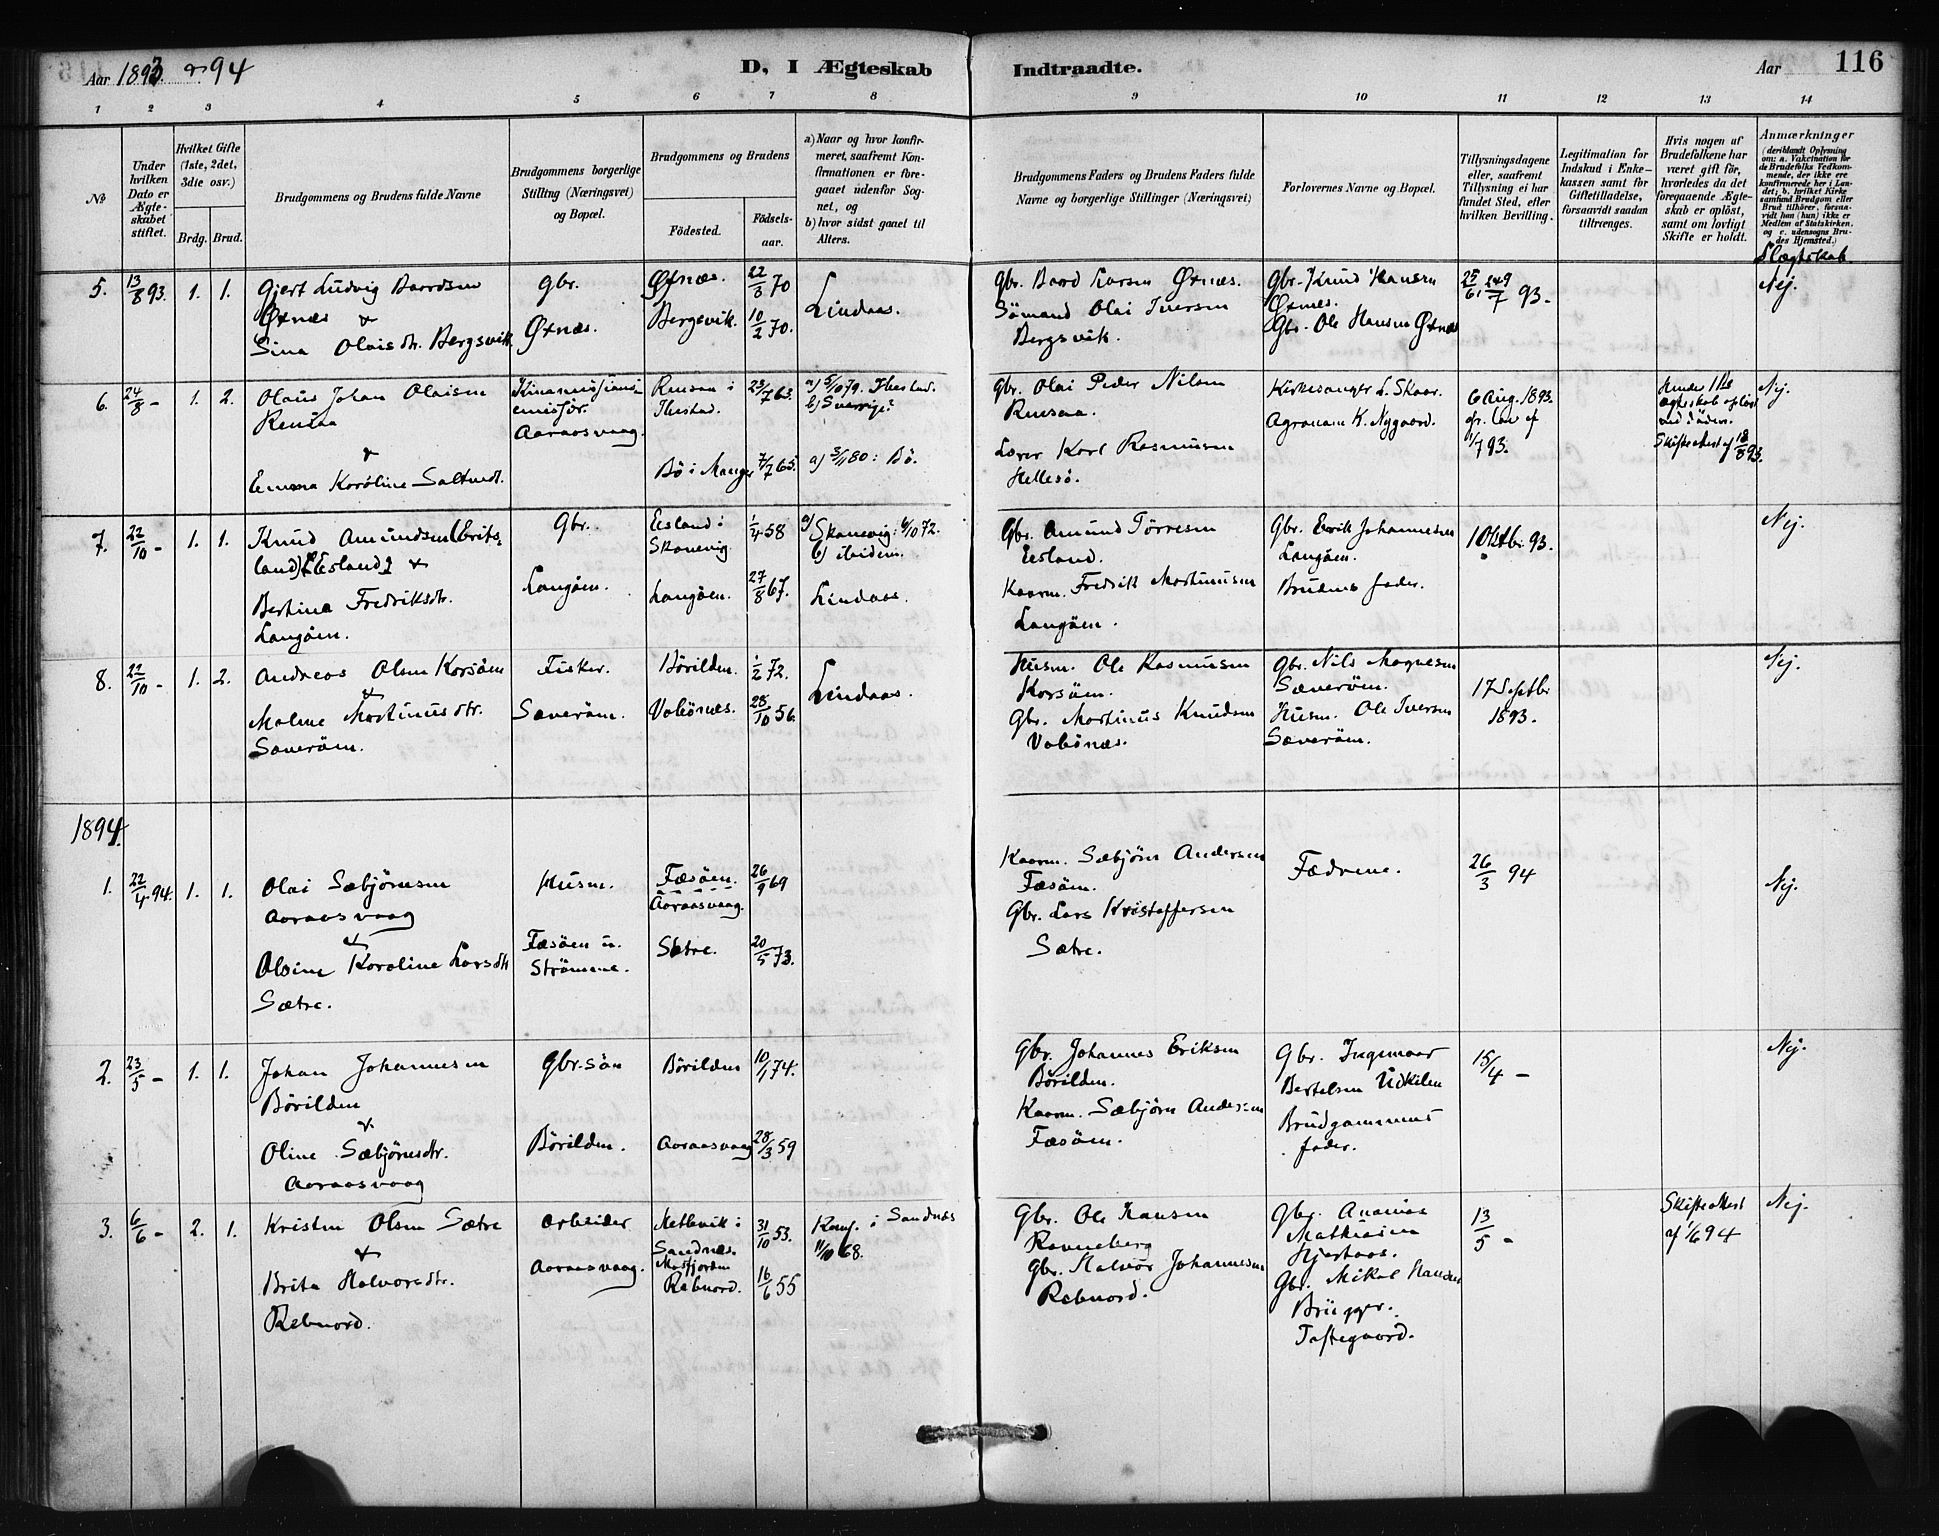 Aar 1893 & 94
D, I Ægteskab
Indtraadte.
Aar
116
1 2 3 4 5 6 7 8 9 10 11 12 13 14
№
Under
hvilken
Dato er
Ægte-
skabet
stiftet.
Hvilket Gifte
(1ste, 2det,
3die osv.)
Brdg. Brud.
Brudgommens og Brudens fulde Navne
Brudgommens borgerlige
Stilling (Næringsvei)
og Bopæl.
Brudgommens og Brudens
Fødested.
Fødsels-
aar.
a) Naar og hvor konfir-
meret, saafremt Kon-
firmationen er fore-
gaaet udenfor Sog-
net, og
b) hvor sidst gaaet til
Alters.
Brudgommens Faders og Brudens Faders fulde
Navne og borgerlige Stillinger (Næringsvei)
Forlovernes Navne og Bopæl.
Tillysningsdagene
eller, saafremt
Tillysning ei har
fundet Sted, efter
hvilken Bevilling.
Legitimation for
Indskud i Enke-
kassen samt for
Giftetilladelse,
forsaavidt saadan
tiltrænges.
Hvis nogen af
Brudefolkene har
været gift før,
hvorledes da det
foregaaende Ægte-
skab er opløst,
samt om lovligt
Skifte er holdt.
Anmærkninger
(deriblandt Oplysning
om: a. Vakcination for
de Brudefolks Vedkom-
mende, der ikke ere
konfirmerede her i Lan-
det; b. hvilket Kirke
samfund Brudgom eller
Brud tilhører, forsaa-
vidt han (hun) ikke er
Medlem af Statskirken,
og c. udensogns Bru-
des Hjemsted.)
Slægtskab
5. 13/8 93. 1. 1.
Gjert Ludvig Baardsen
Øxnæs &
Sina Olaisdtr. Bergsvik.
Gbr.
Øxnæs.
Øxnæs.
Bergsvik.
22/3 70
10/2 70.
Lindaas.
Gbr. Baard Larsen Øxnæs.
Sømand Olai Iversen
Bergsvik.
Gbr. Knud Hansen
Øxnæs.
Gbr. Ole Hansen Øxnæs
25/6, 2&9/7 93.
Nej.
6. 24/8 - 1. 2.
Olaus Johan Olaisen
Rensaa
&
Emma Karoline Saltnæs.
Kinamissions-
emissær.
Aaraasvaag.
Rensaa i
Ibestad.
Bø i Manger
23/7 63.
7/7 65.
a) 5/10 79. Ibestad.
b) Sverrige?
a) 3/1 80: Bø.
Gbr. Olai Peder Nilsen
Rensaa.
Lærer Karl Rasmussen
Hellesø.
Kirkesanger L. Skaar.
Agronom K. Nygaard.
6 Aug. 1893.
1/7 93.
Hendes 1ste
ægteskab opløst
ved døden.
Skifteattest af 18/8 93.
Nej.
7. 22/10 - 1. 1.
Knud Amundsen (Erits-
land) (Eesland) &
Bertina Fredriksdtr.
Langøen.
Gbr.
Langøen.
Eesland i
Skonevig
Langøen.
1/4 58
27/8 67.
a) Skonevig: 6/10 72.
b) ibidem.
Lindaas.
Gbr. Amund Tørresen
Eesland.
Kaarm. Fredrik Martinusen
Langøen.
Gbr. Eerik Johannesen
Langøen.
Brudens fader.
1 Oktbr. 93.
Nej.
8. 22/10 - 1. 2.
Andreas Olsen Korsøen
&
Malene Martinusdtr.
Saverøen.
Fisker.
Saverøen.
Børilden.
Vabønæs.
1/2 72.
28/10 56.
Lindaas.
Husm. Ole Rasmusen
Korsøen.
Gbr. Martinus Knudsen
Vabønæs.
Gbr. Nils Magnesen
Sæverøen.
Husm. Ole Iversen
Sæverøen.
17 Septbr
1893.
Nej.
1894.
1. 22/4 94. 1. 1.
Olai Sæbjørnsen
Aaraasvaag
&
Olsine Karoline Larsdtr
Sætre.
Husm.
Fæsøen u.
Strømene.
Fæsøen.
Aaraasvaag.
Sætre.
26/9 69
20/5 73.
Kaarm. Sæbjørn Andersen
Fæsøen.
Gbr. Lars Kristoffersen
Sætre.
Fædrene.
26/3 94
Nej.
2. 23/5 - 1. 1.
Johan Johannesen
Børilden
&
Oline Sæbjørnsdtr.
Aaraasvaag
Gbr.søn
Børilden.
Børilden
Aaraasvaag
10/1 74.
28/3 59
Gbr. Johannes Eriksen
Børilden.
Kaarm. Sæbjørn Andersen
Fæsøen.
Gbr. Ingemaar
Bertelsen Udkilen
Brudgommens
fader.
15/4 -
Nej.
3. 6/6 - 2. 1.
Kristen Olsen Sætre
&
Brita Halvorsdtr.
Rebnord.
Arbeider
Aaraasvaag.
Hetlevik i
Sandnæs.
Masfjorden
Rebnord.
31/10 53.
16/6 55
Konf. i Sandnæs
11/10 68.
Gbr. Ole Hansen
Ravneberg
Gbr. Halvor Johannesen
Rebnord.
Gbr. Ananias
Mathiasen
Hjertaas.
Gbr. Mikal Hansen
Brügger.
Toftegaard.
13/5 -
Skifteattest
af 1/6 94
Nej.